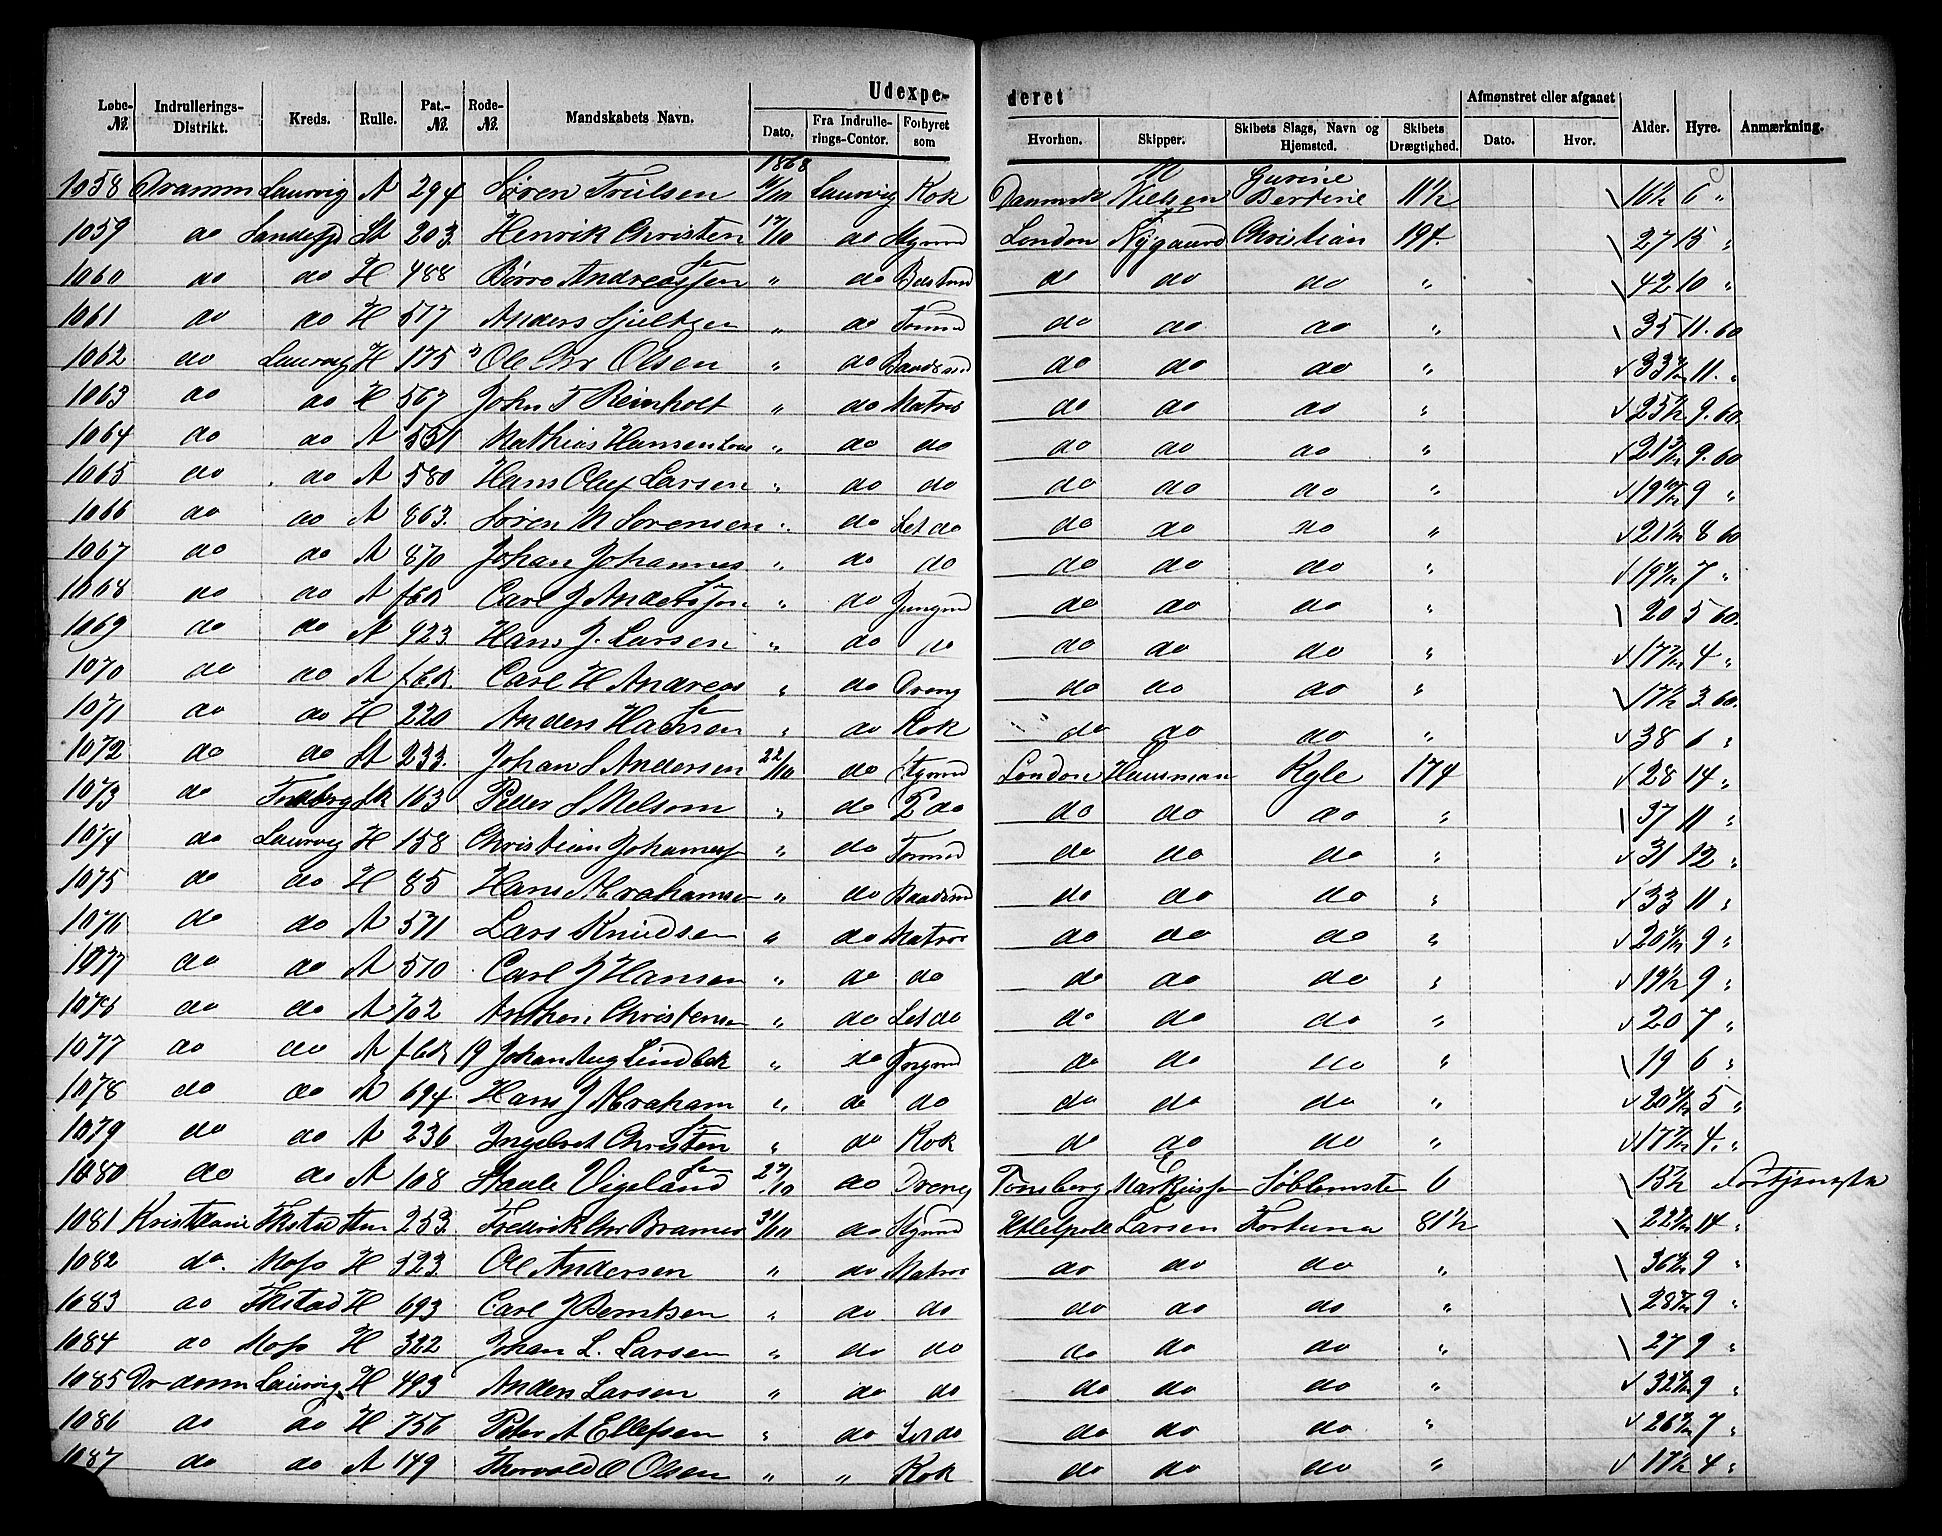 Udexpe- deret
Løbe-№. Indrullerings-Distrikt. Kreds. Rulle. Pat.-№. Rode-№. Mandskabets Navn. Dato. Fra Indrulle-rings-Contor. Forhyret som Hvorhen. Skipper. Skibets Slags, Navn og Hjemsted. Skibets Drægtighed. Afmønstret eller afgaaet Dato. Hvor. Alder. Hyre. Anmærkning.
1868
1058 Dramm Laurvig A 294 Søren Trulsen Laurvig Kok Danmark M Nielsen Gurine Bertine 11½ 16½ 6 "
1059 do Sandefjd St 203. Henrik Christensen 17/10 do Stymd London Nygaard Christian 194. 27 15 "
1060 do do H 488 Børre Andreassen " do do do do " 42 10 "
1061 do do H 517 Anders " do Tømmd do do do " 35 11.60
1062 do Laurvig H 175 Ole Chr Olsen " do Baadsmd do do do " 33 11. "
1063 do do H 567 John T Reinholt " do Matros do do do " 9.60.
1064 do do A 551 Mathias Hansen " do do do do do " 9.60
1065 do do A 580 Hans Oluf Larsen " do do do do do " 9 "
1066 do do A 863. Søren M Sørensen " do Let do do do do " 8 60
1067 do do A 870 Johan Johannes " do do do do do " 7 "
1068 do do A Carl J Anderssen " do Jungmd do do do " 20 5 60.
1069 do do A 923. Hans J. Larsen " do do do do do " 4 "
1070 do do A Carl H Andreas " do Dreng do do do " 17½ 3.60.
1071 do do H 220 Anders Hansen " do Kok do do do " 38 6 "
1072 do do St 233. Johan S Andersen 22/10 do Stymd London Hausman Kyle 174 28 14 "
1073 do 163 Peder S Melsom " do 2 do do do do " 37 11 "
1074 do Laurvig H 158 Christian Johanness " do Tømmd do do do " 31 12 "
1075 do do H 85 Hans Abrahamsen " do Baadsmd do do do " 33 11 "
1076 do do A 571 Lars Knudsen " do Matros do do do " 9 "
1077 do do A 510 Carl J Hansen " do do do do do " 19½ 9 "
1076 do do A 702 Anthon Christensen " do Let do do do do " 20 7 "
1077 do do A 19 Johan Aug Lindbek " do Jngmd do do do " 19 6 "
1078 do do A 694 Hans J Abraham " do do do do do " 5 "
1079 do do A 236 Ingebret Christensen " do Kok do do do " 4. "
1080 do do A 108 Vigeland 27/10 do Dreng Tønsberg Markussen Søblomsten 6 15½
1081 Kristiania Fkstad 253. Frederik Chr 31/10 do Stymd Larsen Fortuna 81½ 14 "
1082 do. Moss H 523. Ole Andersen " do Matros do do do " 9 "
1083 do Fkstad H 693 Carl J Berntsen " do do do do do " 9 "
1084 do Moss H 322 Johan L. Larsen " do do do do do " 27 9 "
1085 Dramm Laurvig H 493 Anders Larsen " do do do do do " 9 "
1086 do do H 756 Peter A Ellefsen " do Let do do do do " 7 "
1087 do do A 149 Thorvald O Olsen " " Kok do do do " 17½ 4 "